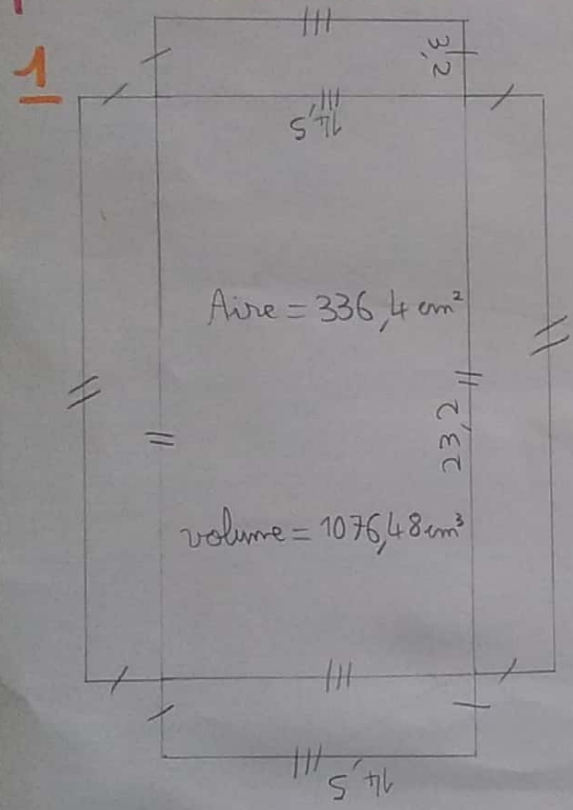 1
3,2
14,5
Aire = 336,4 cm²
23,2
volume = 1076,48 cm³
14,5